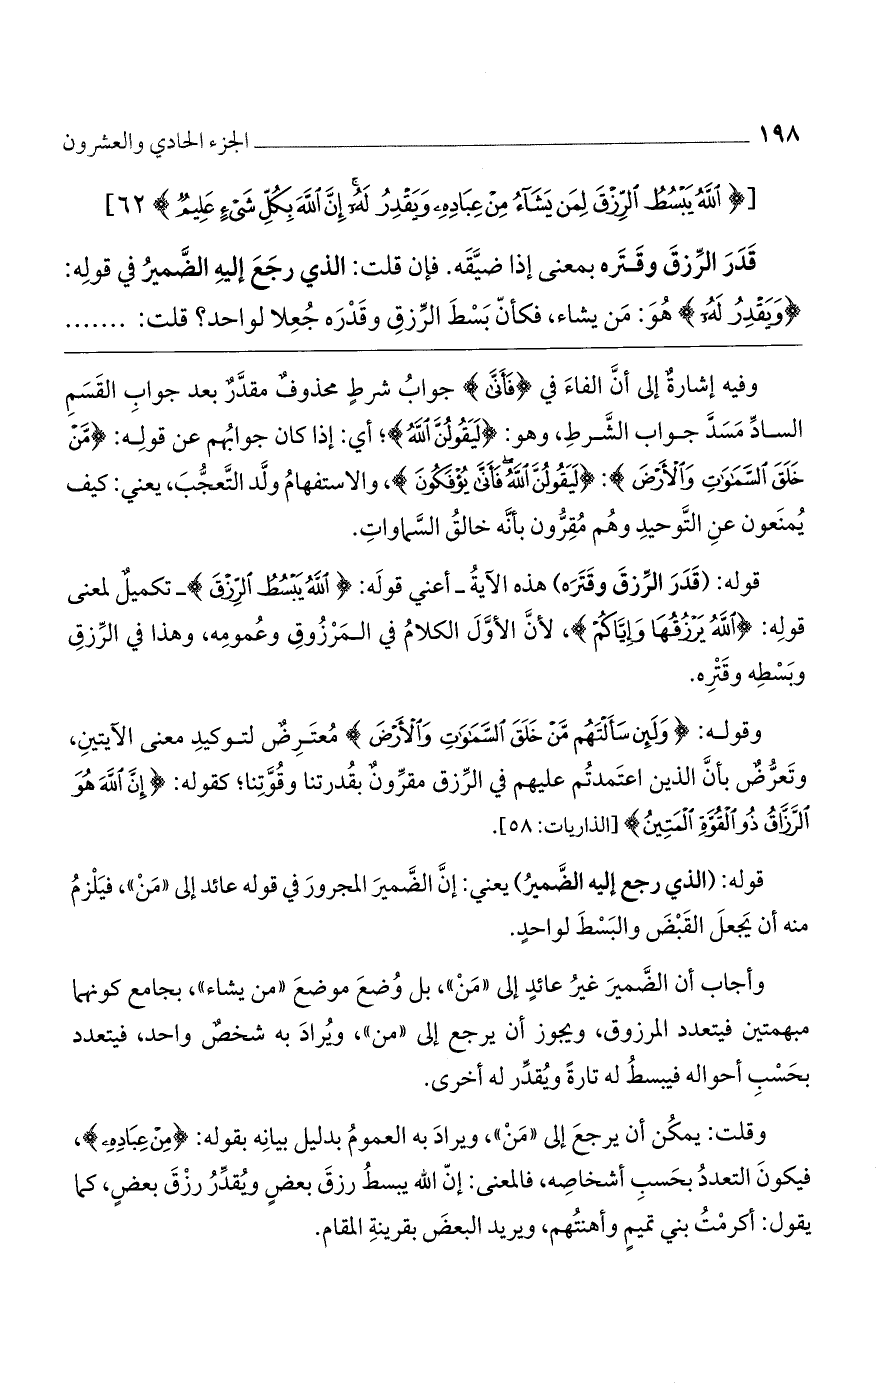 ١٩٨ الجزء الحادي والعشرون
[﴿ ٱللَّهُ يَبْسُطُ ٱلرِّزْقَ لِمَن يَشَآءُ مِنْ عِبَادِهِۦ وَيَقْدِرُ لَهُۥٓ ۚ إِنَّ ٱللَّهَ بِكُلِّ شَىْءٍ عَلِيمٌ ﴾ ٦٢]
قَدَرَ الرِّزقَ وقَتَره بمعنى إذا ضيَّقَه. فإن قلت: الذي رجَعَ إليهِ الضَّميرُ في قولِه:
﴿وَيَقْدِرُ لَهُۥٓ ﴾ هُوَ: مَن يشاء، فكأنّ بَسْطَ الرِّزقِ وقَدْرَه جُعِلا لواحد؟ قلت: .......
وفيه إشارةٌ إلى أنَّ الفاءَ في ﴿فَأَنَّىٰ ﴾ جوابُ شرطٍ محذوفٌ مقدَّرٌ بعد جوابِ القَسَمِ
السادِّ مَسَدَّ جواب الشَّرطِ، وهو: ﴿لَيَقُولُنَّ ٱللَّهُ ﴾؛ أي: إذا كان جوابُهم عن قولِه: ﴿مَّنْ
خَلَقَ ٱلسَّمَٰوَٰتِ وَٱلْأَرْضَ ﴾: ﴿لَيَقُولُنَّ ٱللَّهُ ۖ فَأَنَّىٰ يُؤْفَكُونَ ﴾، والاستفهامُ ولَّد التَّعجُّبَ، يعني: كيف
يُمنَعون عنِ التَّوحيدِ وهُم مُقِرُّون بأنَّه خالقُ السَّماواتِ.
قوله: (قَدَرَ الرِّزقَ وقَتَرَه) هذه الآيةُ ـ أعني قولَه: ﴿ ٱللَّهُ يَبْسُطُ ٱلرِّزْقَ ﴾ ـ تكميلٌ لمعنى
قولِه: ﴿ٱللَّهُ يَرْزُقُهَا وَإِيَّاكُمْ ﴾، لأنَّ الأوَّلَ الكلامُ في المَرْزُوقِ وعُمومِه، وهذا في الرِّزقِ
وبَسْطِه وقَتْرِه.
وقوله: ﴿ وَلَئِن سَأَلْتَهُم مَّنْ خَلَقَ ٱلسَّمَٰوَٰتِ وَٱلْأَرْضَ ﴾ مُعتَرِضٌ لتوكيدِ معنى الآيتينِ،
وتَعرُّضٌ بأنَّ الذين اعتَمدتُم عليهم في الرِّزق مقرِّونٌ بقُدرتنا وقُوَّتِنا؛ كقوله: ﴿ إِنَّ ٱللَّهَ هُوَ
ٱلرَّزَّاقُ ذُو ٱلْقُوَّةِ ٱلْمَتِينُ﴾ [الذاريات: ٥٨].
قوله: (الذي رجع إليه الضَّميرُ) يعني: إنَّ الضَّميرَ المجرورَ في قوله عائد إلى «مَنْ»، فيَلْزمُ
منه أن يَجعلَ القَبْضَ والبَسْطَ لواحدٍ.
وأجاب أن الضَّميرَ غيرُ عائدٍ إلى «مَنْ»، بل وُضعَ موضعَ «من يشاء»، بجامع كونهما
مبهمتين فيتعدد المرزوق، ويجوز أن يرجع إلى «من»، ويُرادَ به شخصٌ واحد، فيتعدد
بحَسْبِ أحواله فيبسطُ له تارةً ويُقدِّر له أخرى.
وقلت: يمكُن أن يرجعَ إلى «مَنْ»، ويرادَ به العمومُ بدليل بيانِه بقوله: ﴿مِنْ عِبَادِهِۦ ﴾،
فيكونَ التعددُ بحَسبِ أشخاصِه، فالمعنى: إنّ الله يبسطُ رزقَ بعضٍ ويُقدِّرُ رزْقَ بعضٍ، كما
يقول: أكرمْتُ بني تميمٍ وأهنتُهم، ويريد البعضَ بقرينةِ المقام.